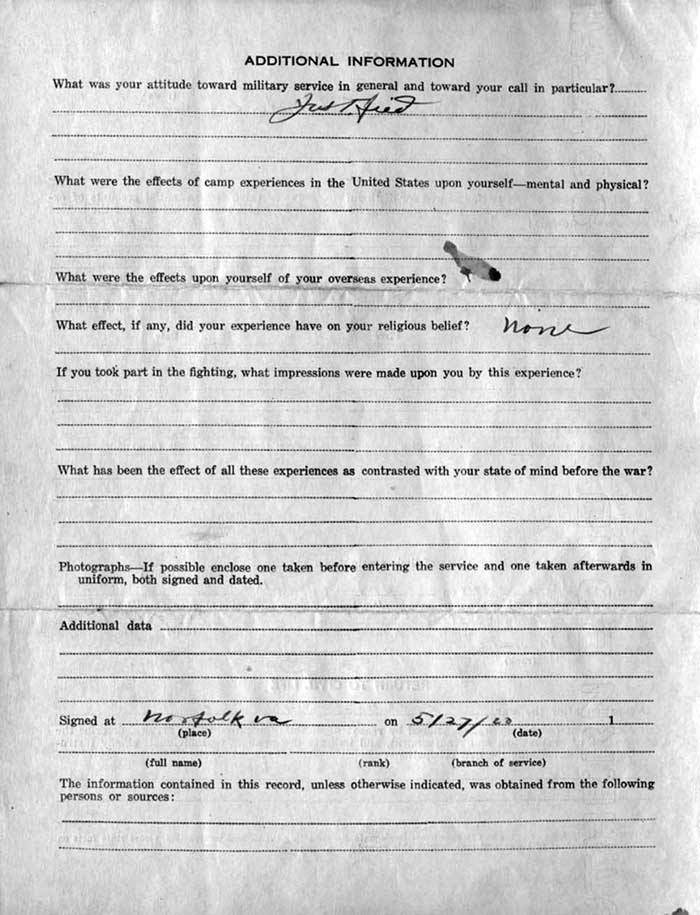 ADDITIONAL INFORMATION
What was your attitude toward military service in general and toward your call in particular?
Justified
What were the effects of camp experiences in the United States upon yourself—mental and physical?
What were the effects upon yourself of your overseas experience?
What effect, if any, did your experience have on your religious belief? None
If you took part in the fighting, what impressions were made upon you by this experience?
What has been the effect of all these experiences as contrasted with your state of mind before the war?
Photographs—If possible enclose one taken before entering the service and one taken afterwards in
uniform, both signed and dated.
Additional data
Signed at Norfolk va on 5/27/20 1
(place) (date)
(full name) (rank) (branch of service)
The information contained in this record, unless otherwise indicated, was obtained from the following
persons or sources: